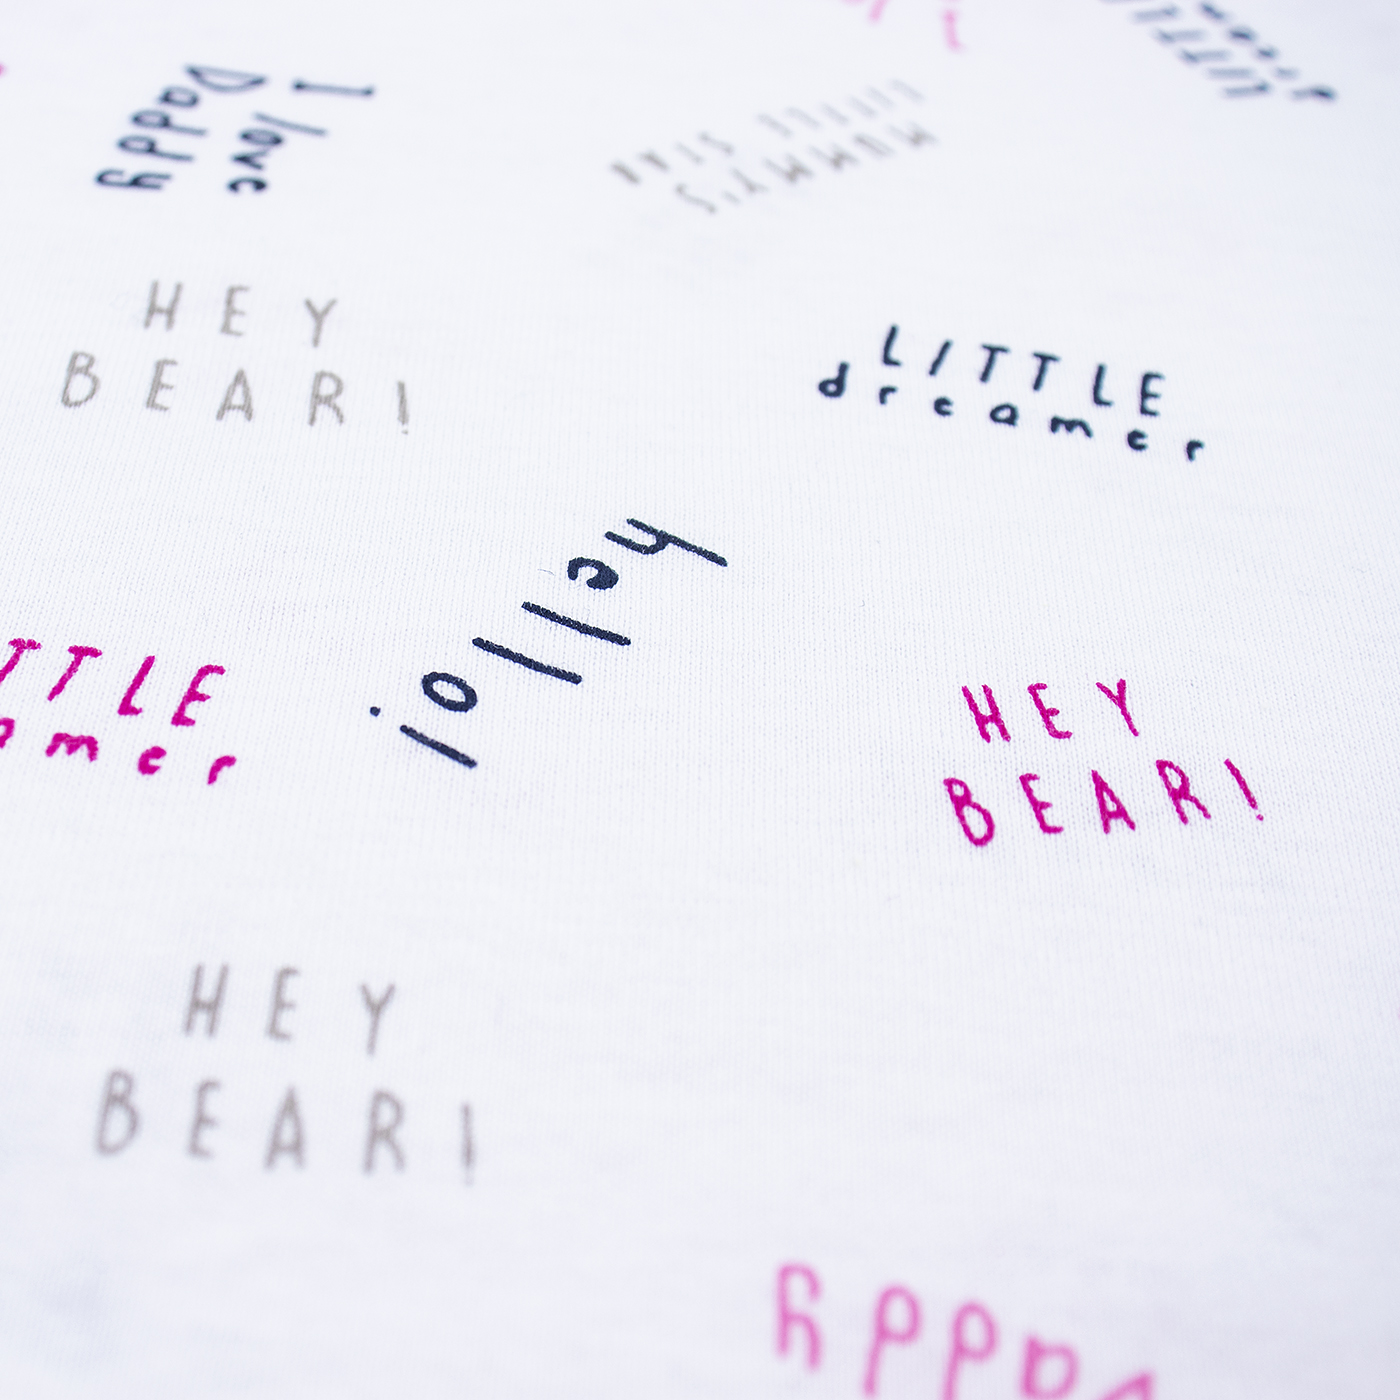 I love
Daddy
MUMMY'S
LITTLE STAR
HEY
BEAR!
LITTLE
dreamer
hello!
TTLE
amer
HEY
BEAR!
HEY
BEAR!
addy